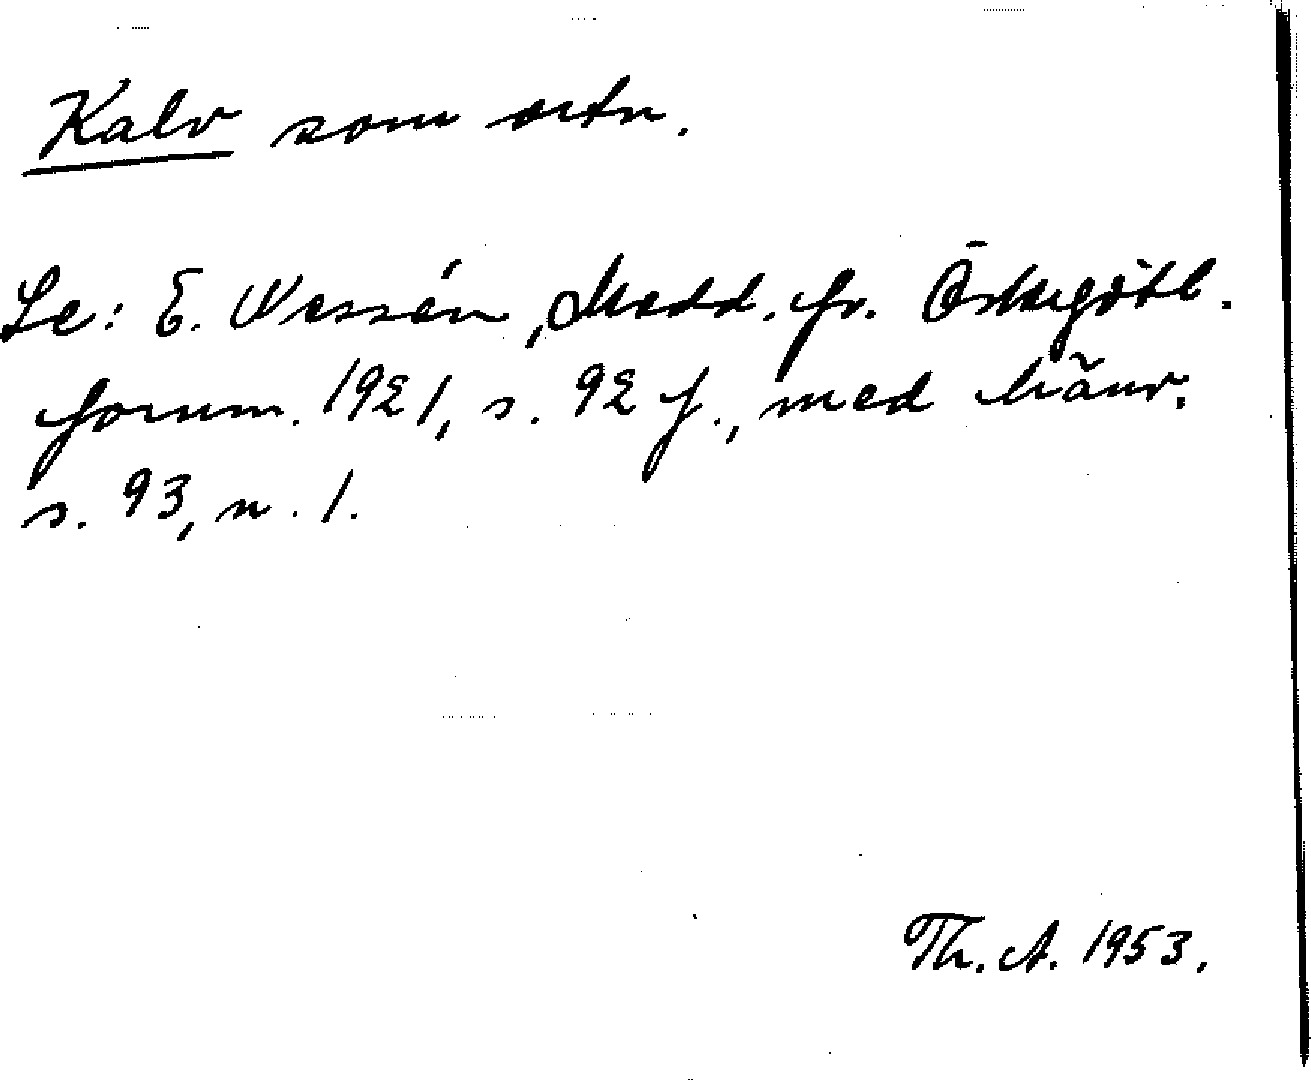 Kalv som ortn.
Se: E. Wessén, Medd. fr. Östergötl.
fornm. 1921, s. 92 f., med hänv.
s. 93, n. 1.
Th. A. 1953.